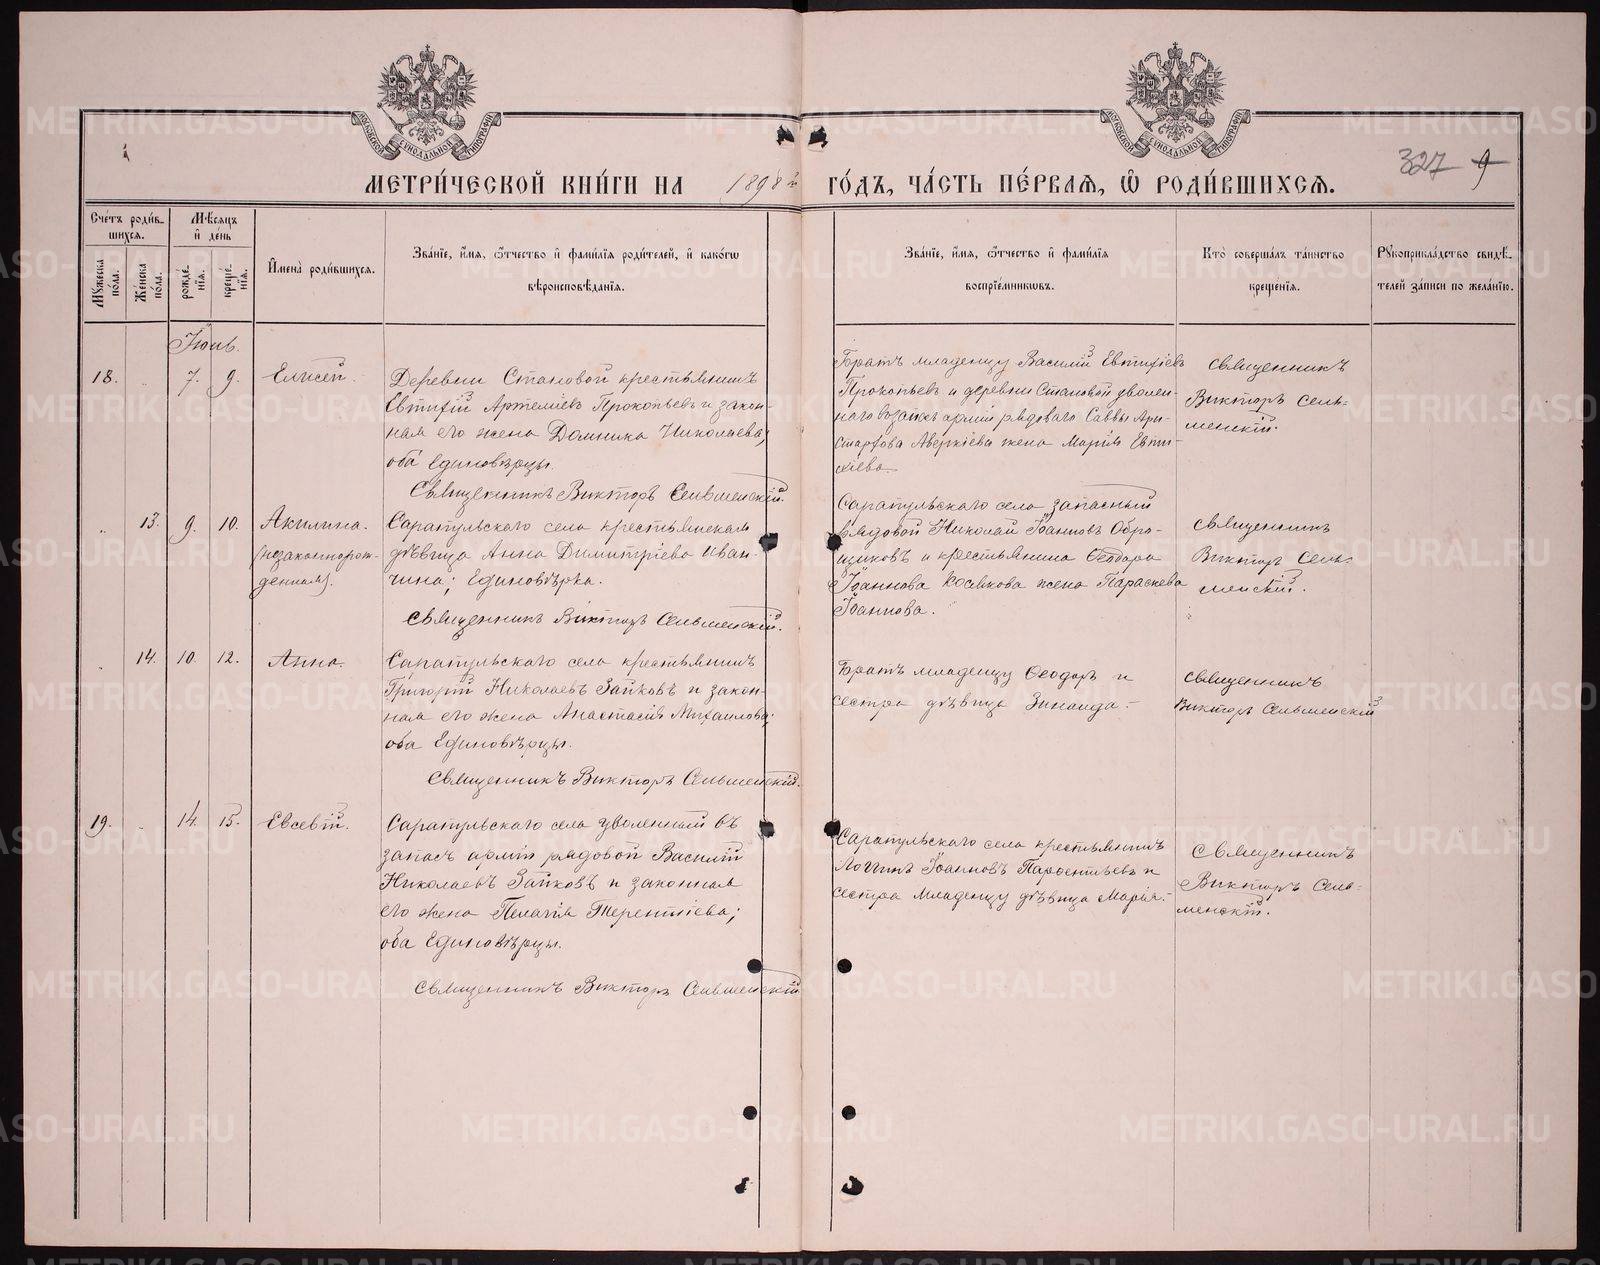 МОСКОВСКОЙ СѴНОДАЛЬНОЙ ТИПОГРАФІИ
МОСКОВСКОЙ СѴНОДАЛЬНОЙ ТИПОГРАФІИ
327 9
МЕТРИ́ЧЕСКОЙ КНИ́ГИ НА 1898 й ГО́ДЪ, ЧА́СТЬ ПЕ́РВАѦ, Ѿ РОДИ́ВШИХСѦ.
Сче́тъ роди́в-
шихсѧ.
Мужеска по́ла.
Же́нска по́ла.
Мѣ́сѧцъ
и҆ де́нь
рожде́нїѧ.
креще́нїѧ.
И҆мена̀ роди́вшихсѧ.
Зва́нїе, и҆́мѧ, ѻ҆́тчество и҆ фами́лїѧ роди́телей, и҆ како́гѡ
вѣроисповѣ́данїѧ.
Зва́нїе, и҆́мѧ, ѻ҆́тчество и҆ фами́лїѧ
воспрїе́мникѡвъ.
Кто̀ соверша́лъ та́инство
креще́нїѧ.
Рꙋкоприкла́дство свидѣ́-
телей за́писи по жела́нїю.
Іюнь.
18. 7. 9. Елисей.
Деревни Становой крестьянинъ
Евтихій Артеміевъ Прокопьевъ и закон-
ная его жена Домника Николаева;
оба Единовѣрцы.
Священникъ Викторъ Сельменскій.
Братъ младенцу Василій Евтихіевъ
Прокопьевъ и деревни Становой уволен-
наго въ запасъ арміи рядоваго Саввы Ари-
стархова Аверкіева жена Марія Евти-
хіева.
Священникъ
Викторъ Сель-
менскій.
13. 9. 10. Акилина.
(незаконнорож-
денная).
Сарапульскаго села крестьянская
дѣвица Анна Димитріева Иван-
чина; Единовѣрка.
Священникъ Викторъ Сельменскій.
Сарапульскаго села запасный
рядовой Николай Іоанновъ Обро-
щиковъ и крестьянина Ѳеодора
Іоаннова Косякова жена Параскева
Іоаннова.
Священникъ
Викторъ Сель-
менскій.
14. 10. 12. Анна.
Сарапульскаго села крестьянинъ
Григорій Николаевъ Зайковъ и закон-
ная его жена Анастасія Михаилова;
оба Единовѣрцы.
Священникъ Викторъ Сельменскій.
Братъ младенцу Ѳеодоръ и
сестра дѣвица Зинаида.
Священникъ
Викторъ Сельменскій
19. 14. 15. Евсевій.
Сарапульскаго села уволенный въ
запасъ арміи рядовой Василій
Николаевъ Зайковъ и законная
его жена Пелагія Терентіева;
оба Единовѣрцы.
Священникъ Викторъ Сельменскій
Сарапульскаго села крестьянинъ
Логгинъ Іоанновъ Пароентьевъ и
сестра младенцу дѣвица Марія.
Священникъ
Викторъ Сель-
менскій.
METRIKI.GASO-URAL.RU